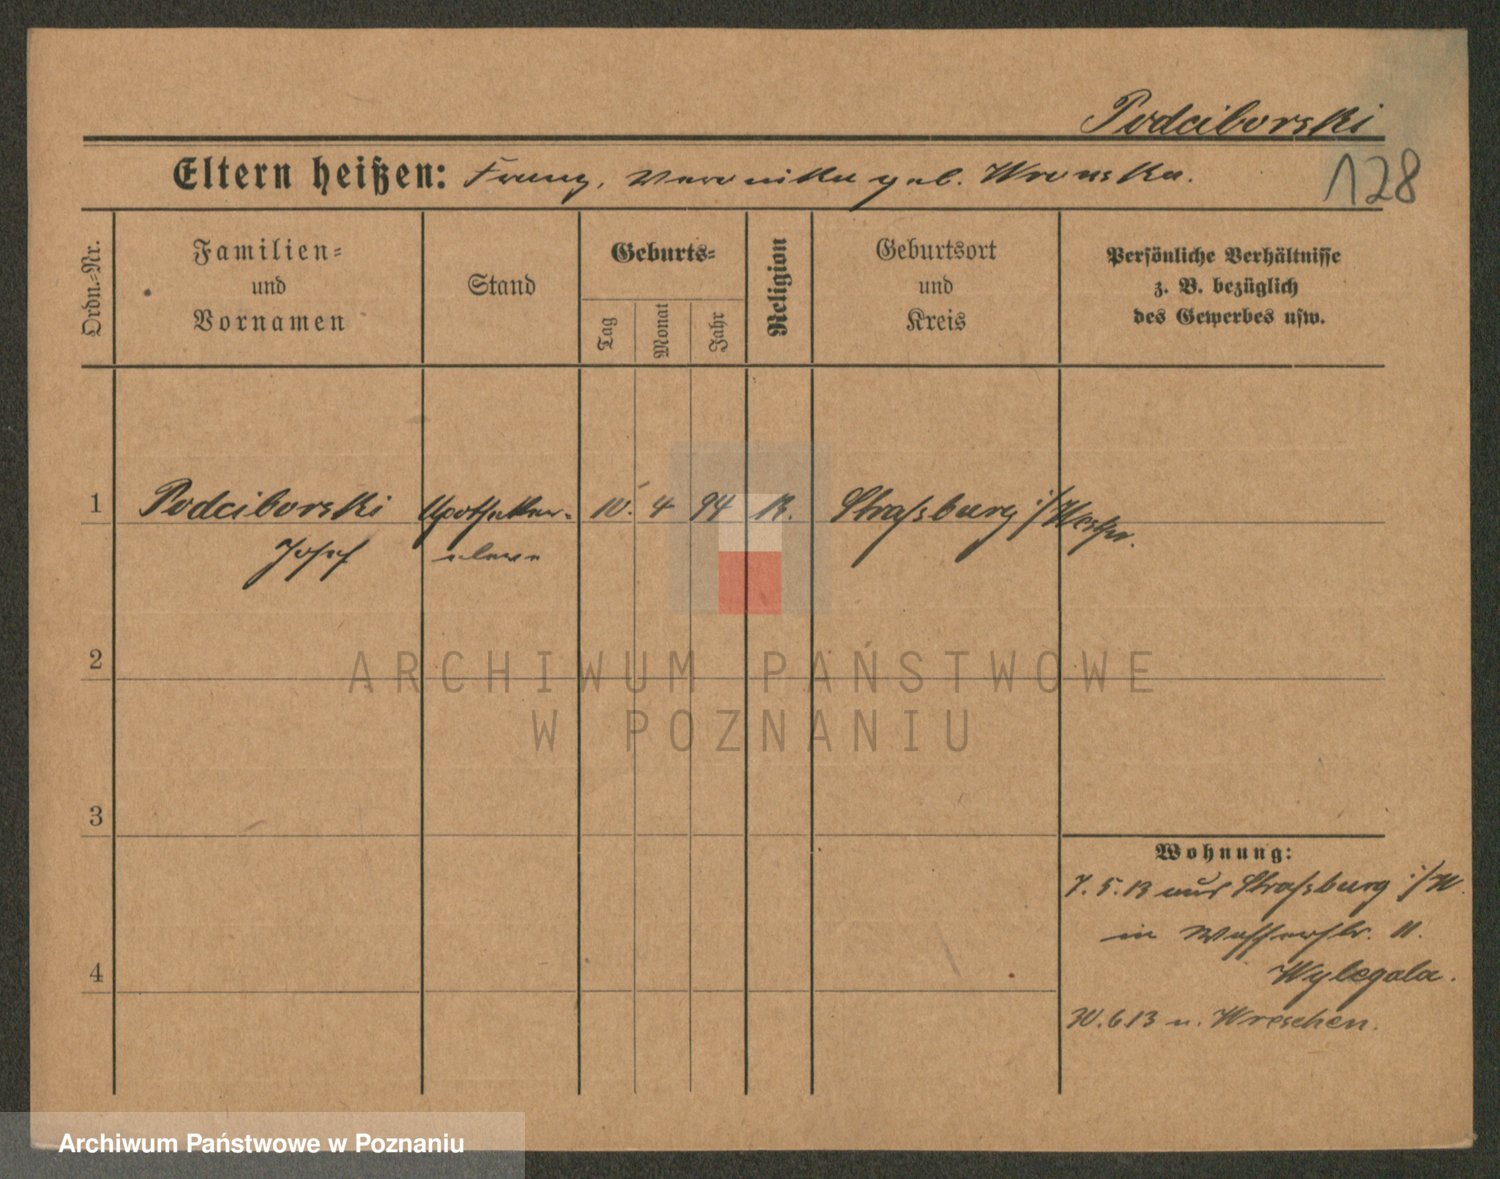 Podciborski
Eltern heißen: Franz, Veronika geb. Wronska.
128
Ordn.-Nr.
Familien-
und
Vornamen
Stand
Geburts-
Tag
Monat
Jahr
Religion
Geburtsort
und
Kreis
Persönliche Verhältnisse
z. B. bezüglich
des Gewerbes usw.
1 Podciborski Apotheker- 10. 4 94 K. Straßburg i/Westpr.
Josef eleve
ARCHIWUM PAŃSTWOWE
W POZNANIU
2
3
4
Wohnung:
7. 5. 13 aus Straßburg i/W.
in Wasserstr. 11.
Wylegala.
30. 6 13 n. Wreschen.
Archiwum Państwowe w Poznaniu